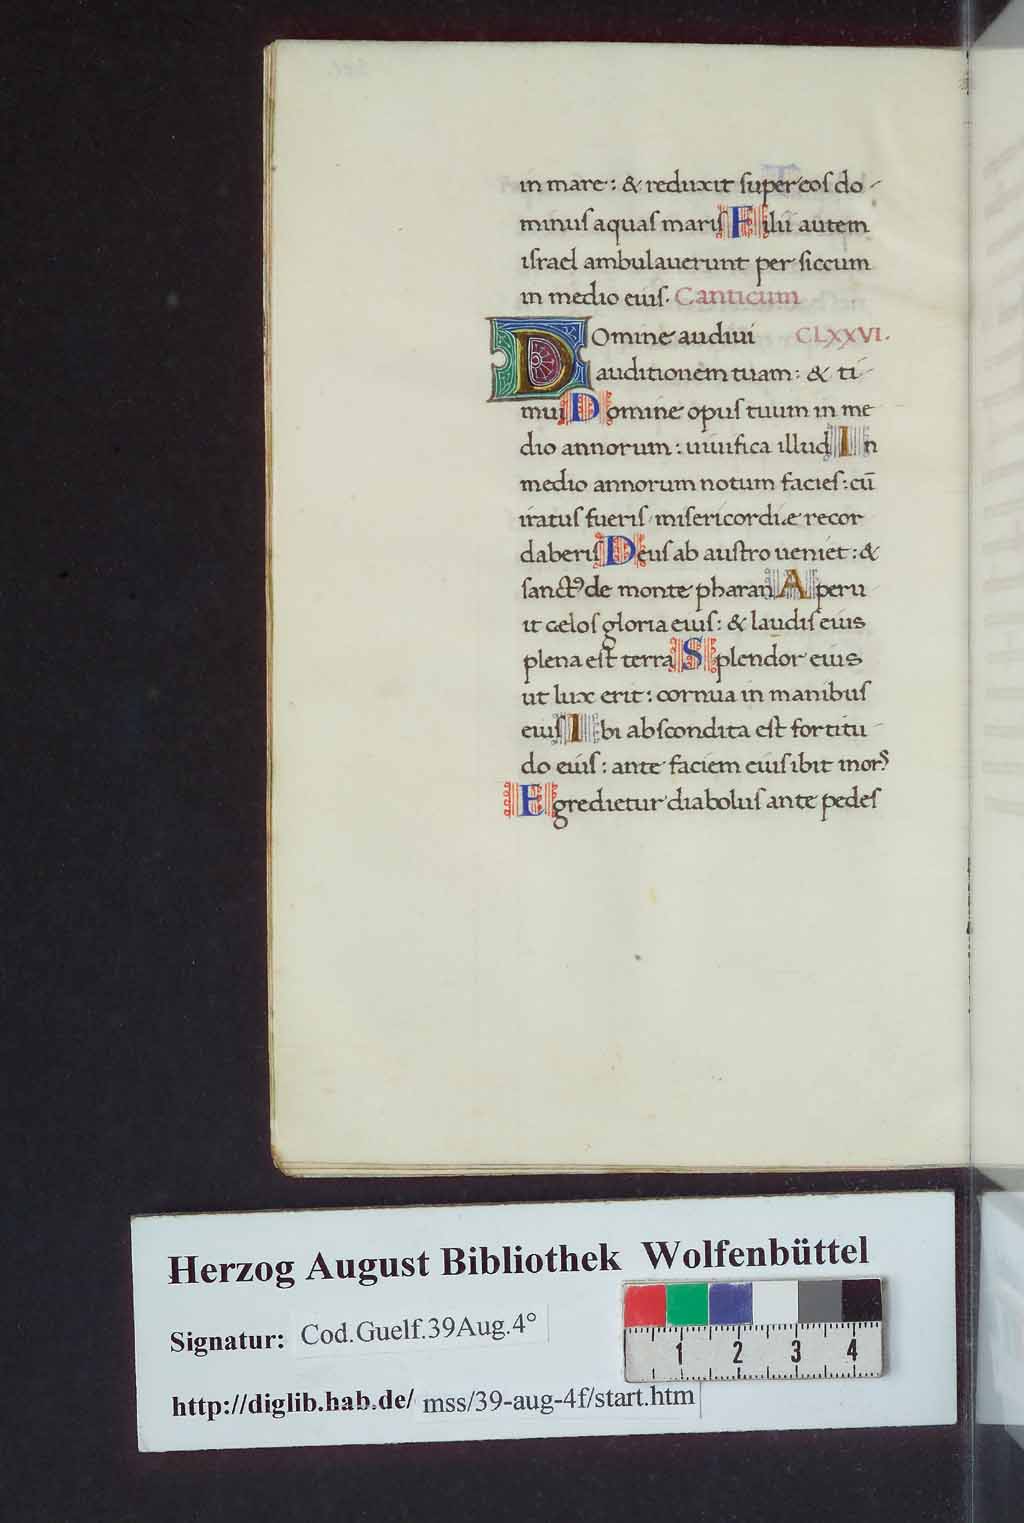 in mare: & reduxit super eos do-
minus aquas maris Filii autem
israel ambulauerunt per siccum
in medio eius. Canticum
Domine audiui CLXXVI.
auditionem tuam: & ti-
mui Domine opus tuum in me
dio annorum: uiuifica illud In
medio annorum notum facies: cū
iratus fueris misericordiæ recor
daberis Deus ab austro ueniet: &
sanctꝰ de monte pharan Aperu
it celos gloria eius: & laudis eius
plena est terra Splendor eius
ut lux erit: cornua in manibus
eius Ibi abscondita est fortitu-
do eius: ante faciem eius ibit mors
Egredietur diabolus ante pedes
Herzog August Bibliothek Wolfenbüttel
Signatur: Cod.Guelf.39Aug.4°
http://diglib.hab.de/ mss/39-aug-4f/start.htm
1 2 3 4